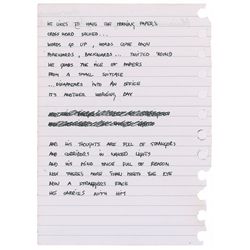 HE LIKES TO HAVE THE MORNING PAPERS
CROSSWORD SOLVED...
WORDS GO UP, WORDS COME DOWN
FORWARDS, BACKWARDS... TWISTED 'ROUND
HE GRABS THE PILE OF PAPERS
FROM A SMALL SUITCASE
...DISAPPEARS INTO AN OFFICE
IT'S ANOTHER WORKING DAY
AND HIS THOUGHTS ARE FULL OF STRANGERS
AND CORRIDORS IN NAKED LIGHTS
AND HIS MIND ONCE FULL OF REASON
NOW THERE'S MORE THAN MEETS THE EYE
NOW A STRANGERS FACE
HE CARRIES WITH HIM